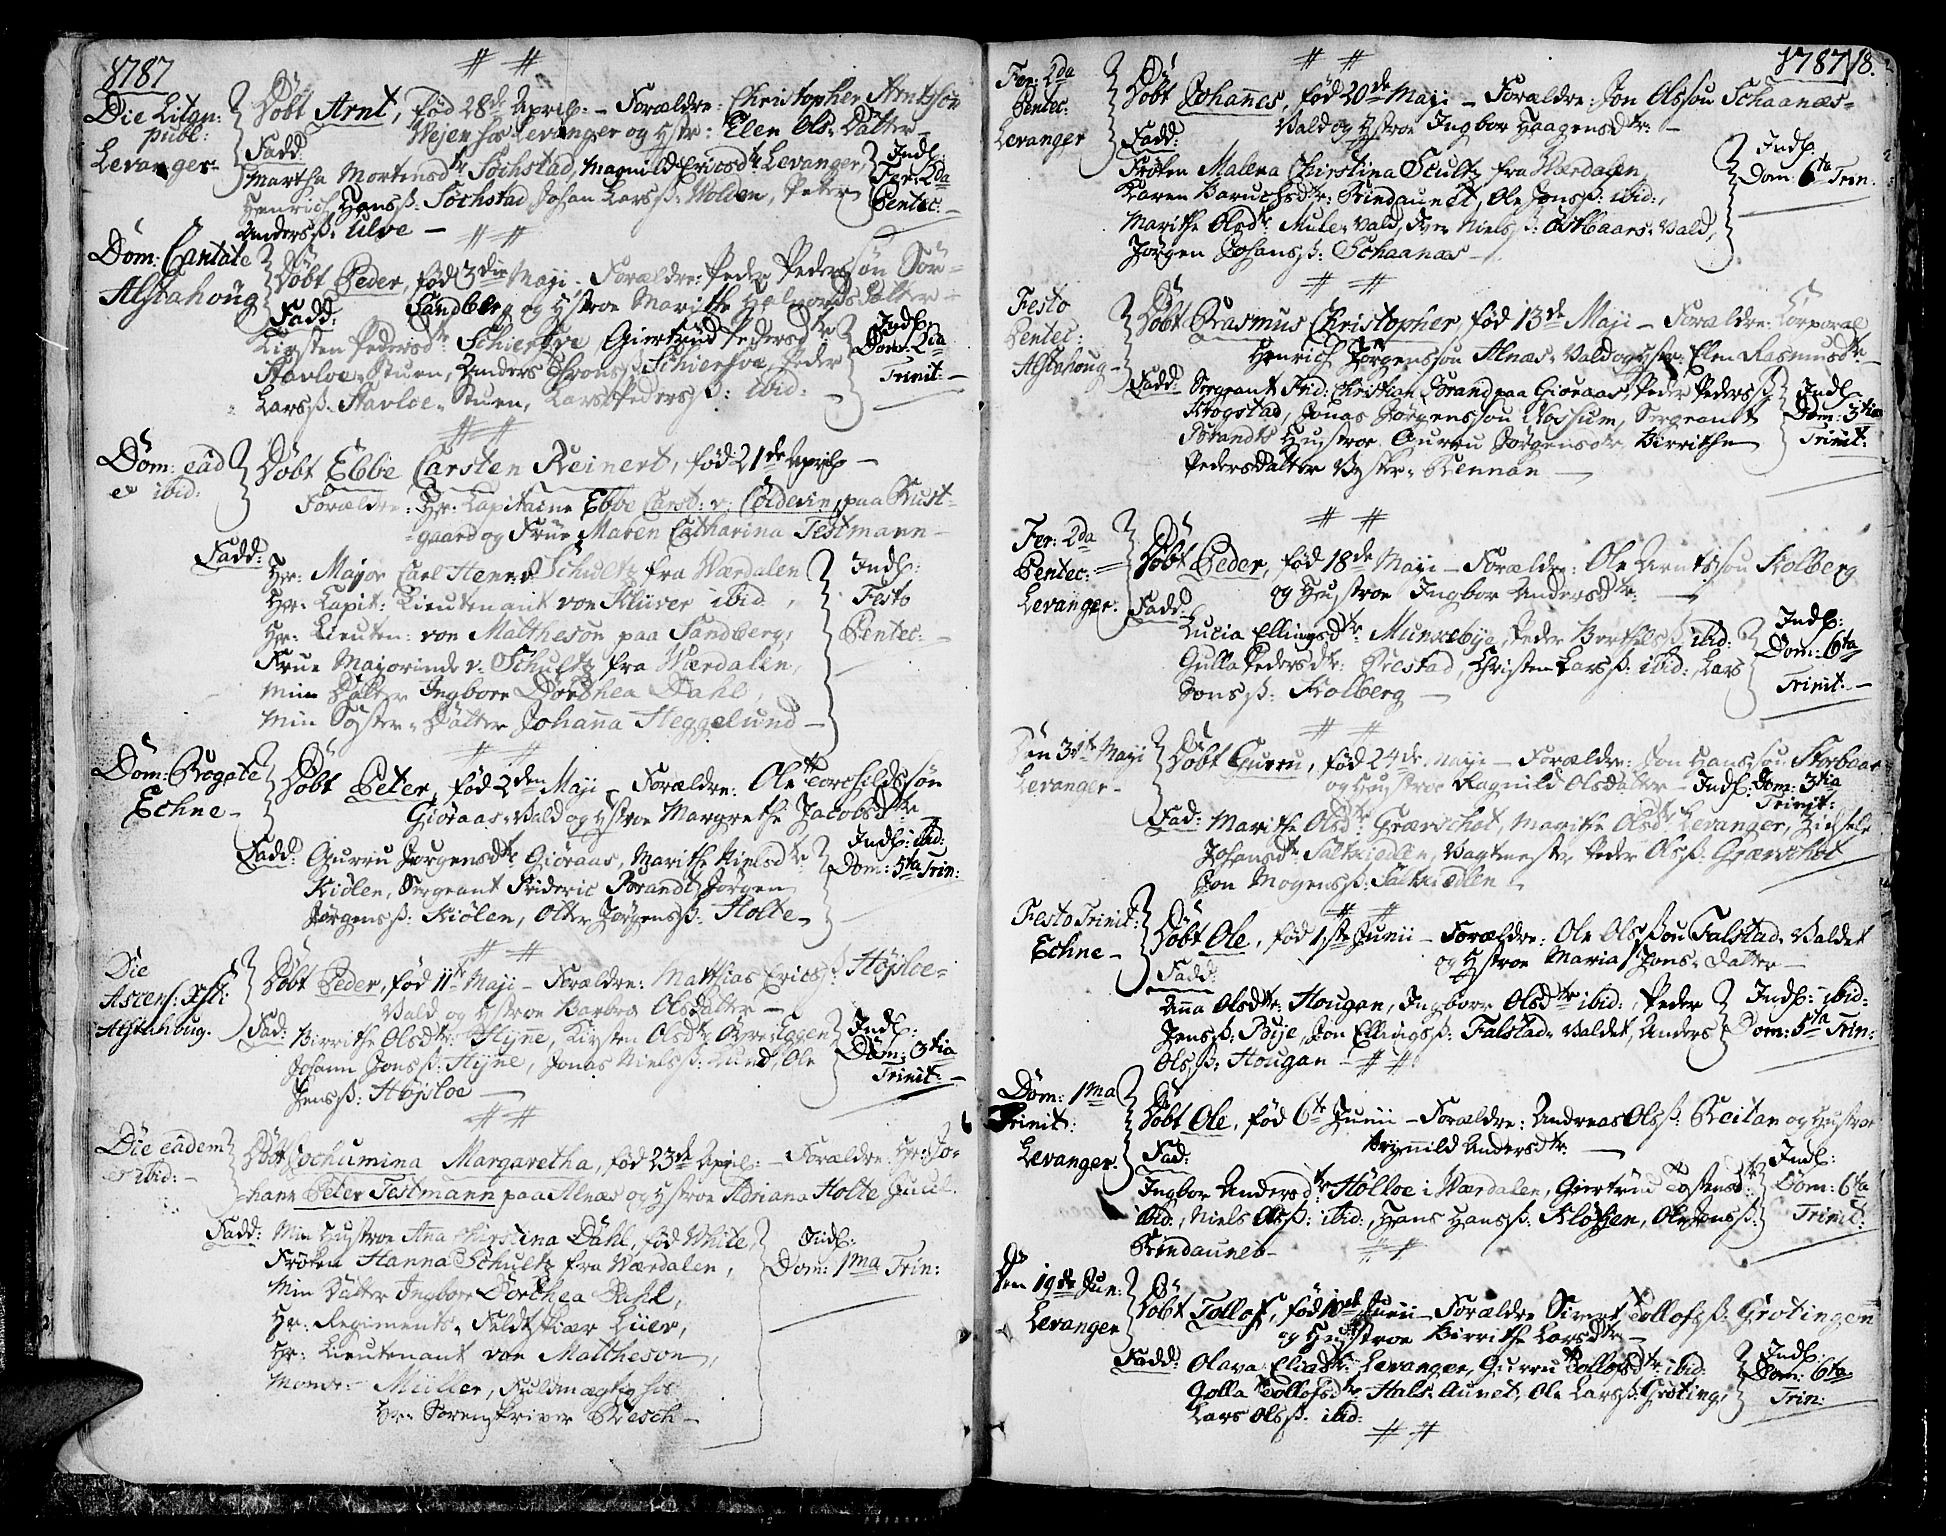 1787
Die Litan:
publ:
Levanger-
Døbt Arnt, fød 28de April: - Forældre: Christopher Arntssøn
Vejen hos Levanger og Hstr: Elen Ols-Datter-
Fadd:
Martha Mortensdtr Sochstad, Magnild Ericsdtr Levanger,
Henrich Hansß: Sochstad, Johan Larsß: Wolden, Peter
Andersß: Ulve -
Indl:
Fer: 2da
Pentec:-
Dom: Cantate
Alstahoug
Døbt Peder, fød 3die Maji - Forældre: Peder Pederssøn Sør=
Sandberg og Hstroe Marithe Halvordsdatter -
Fadd:
Kirsten Pedersdtr: Schierfve, Giertrud Pedersdtr
Stavloe-Stuen, Anders Thronsß: Schierfve, Peder
Larsß: Stavloe-Stuen, Lars Pedersß: ibid: -
Indl:
Dom: 2da
Trinit: -
Dom: eâd
e ibid:
Døbt Ebbe Carsten Reinert, fød 21de April -
Forældre: Hr: Capitaine Ebbe Carst: v: Coldevin, paa Rust-
gaard og Frue Maren Catharina Testmann -
Fadd:
Hr: Major Carl Henr: v Schultz fra Wærdalen
Hr: Capit: Lieutenant von Klüver ibid:,
Hr: Lieuten: von Mattheson paa Sandberg,
Frue Majorinde v: Schultz fra Wærdalen,
Min Datter Ingbore Dorthea Dahl,
Min Søster-Datter Johanna Heggelund -
Indl:
Festo
Pentec: -
Dom: Rogate
Echne -
Døbt Peter, fød 2den Maji - Forældre: Ole Torchildssøn
Gióraas-Vald og Hstroe Margrethe Jacobsdtr -
Fadd: Gurru Jørgensdtr Gióraas, Marithe Nielsdtr
Kiólen, Sergeant Frideric Brandt, Jørgen
Jørgensß: Kiólen, Otter Jørgensß: Holte -
Indl: ibid:
Dom: 5ta Trin:
Die
Ascens: Xsti:
Alstahoug.
Døbt Peder, fød 11te Maji - Forældre: Matthias Ericsß: Højsloe-
Vald og Hstroe Barbra Olsdatter -
Fad: Birrithe Olsdtr: Hijne, Kirsten Olsdtr Øvre Eggen
Johann Jonsß: Hijne, Jonas Nielsß: Lund, Ole
Jensß: Højsloe -
Indl:
Dom: 3tia
Trinit: -
Die eâdem
& ibid: -
Døbt Jochumina Margaretha, fød 23de April: - Forældre: Hr: Jo-
hann Peter Testmann paa Alnæs og Hstroe Adriana Holte Juul.
Fadd: Min Hustroe Ana Christina Dahl, fød White,
Frøken Hanna Schultz fra Wærdalen,
Min Datter Ingbore Dorthea Dahl,
Hr: Regiments-Feldtskiær Lüer,
Hr: Lieutenant von Mattheson,
Monsr: Müller, Fuldmægtig hos
Hr: Sorenskriver Resch -
Indl:
Dom: 1ma Trin:
1787 18.
Fer: 2da
Pentec:
Levanger
Døbt Johannes, fød 20de Maji - Forældre: Jon Olssøn Schaanæs-
Vald og Hstroe Ingbor Haagensdtr: -
Fadd:
Frøken Malena Christina Scultz fra Wærdalen,
Karen Baruchsdtr: Rindaunet, Ole Jonsß: ibid:,
Marithe Olsdtr Mule-Vald, Iver Nielsß: Østbaars-Vald,
Jørgen Johansß: Schaanæs -
Indl:
Dom: 6ta Trin:
Festo
Pentec:
Alstahoug -
Døbt Rasmus Christopher, fød 13de Maji - Forældre: Corporal
Henrich Jørgenssøn Alnæs-Vald og Hstr: Elen Rasmusdtr -
Fadd: Sergeant Frid: Christian Brand paa Gióraas, Peder Pedersß:
Krogstad, Jonas Jørgenssøn Nossum, Sergeant
Brandts Hustroe, Gurru Jørgensdtr, Birrithe
Pedersdatter Vster-Rennan -
Indl:
Dom: 3tia
Trinit:
Fer: 2da
Pentec:
Levanger.
Døbt Peder, fød 18de Maji - Forældre: Ole Arntssøn Kolberg
og Hustroe Ingbor Andersdtr: -
Fadd:
Lucia Ellingsdtr: Munkebije, Peder Berthelsß: ibid:
Gulla Pedersdtr: Prestad, Christen Larsß: ibid: Lars
Jonsß: Kolberg -
Indl:
Dom: 6ta
Trinit: -
Den 31te Maji
Levanger -
Døbt Gurru, fød 24de Maji - Forældre: Jon Hanssøn Storbaar
og Hustroe Ragnild Olsdatter - Indl: Dom: 3tia
Trinit:
Fad: Marithe Olsdtr: Grævschot, Marithe Olsdtr Levanger, Zidsele
Johansdtr Saltkiedlen, Vagtmester Peder Olsß: Grævschot
Jon Mogensß: Saltkiedlen -
Festo Trinit:
Echne -
Døbt Ole, fød 1ste Junii - Forældre: Ole Olssøn Falstad-Valdet
og Hstroe Maria Jons-Datter -
Fadd:
Anna Olsdtr: Hougan, Ingborr Olsdtr ibid:, Peder
Jensß: Bije, Jon Ellingsß: Falstad-Valdet, Anders
Olsß: Hougan -
Indl: ibid:
Dom: 5ta Trin:
Dom: 1ma
Trinit:
Levanger.
Døbt Ole, fød 6te Junii - Forældre: Andreas Olsß: Reitan og Hustroe
Brynnild Andersdtr: -
Fad:
Ingbor Andersdtr Holloe i Wærdalen, Giertrud Tostensdtr:
ibid:, Niels Olsß: ibid:, Hans Hansß: Kloxen, Ole Jonsß:
Rindaunet -
Indl:
Dom: 6ta
Trinit:
Den 19de Jun:
Levanger
Døbt Tollof, fød 10de Junii - Forældre Sivert Tollofsß: Grotingen
og Hustroe Birrithe Larsdtr -
Fadd: Olava Eliasdtr: Levanger, Gurru Tollofsdtr: ibid:
Golla Tollofsdtr Hals-Aunet, Ole Larsß: Grøting,
Lars Olsß: ibid:
Indl:
Dom: 6ta
Trin: